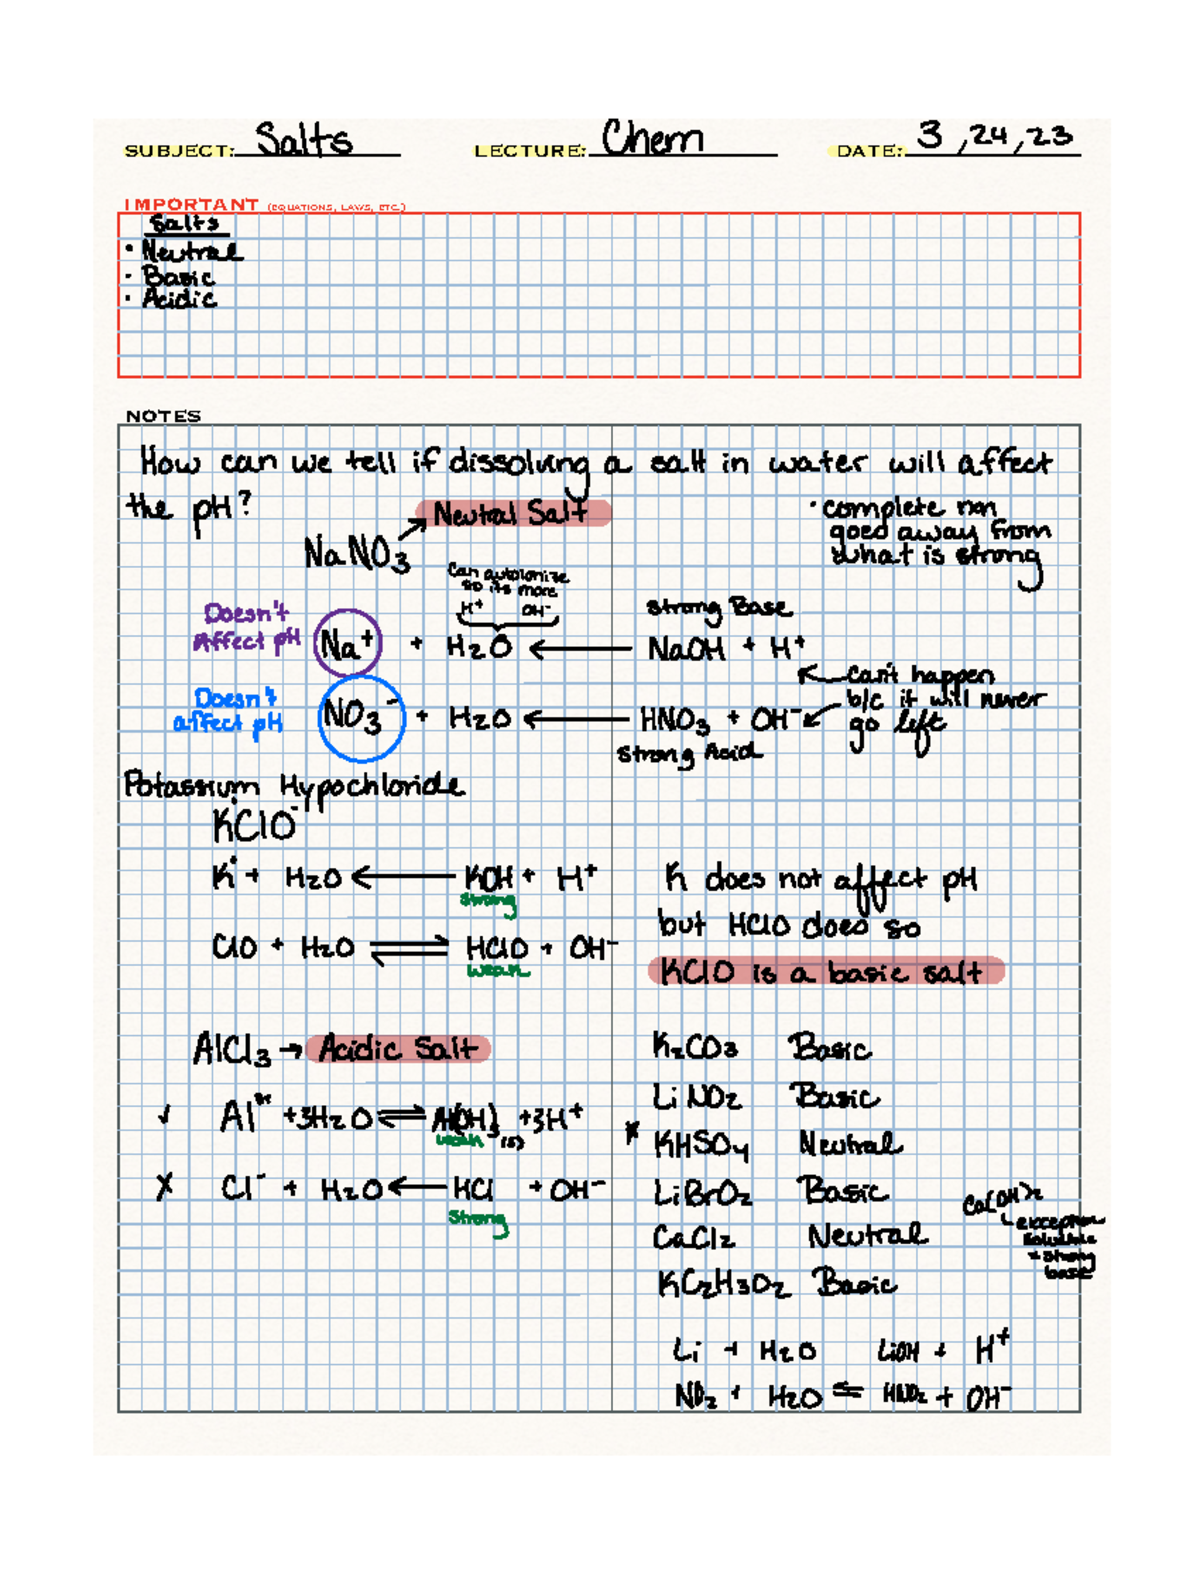 SUBJECT: Salts LECTURE: Chem DATE: 3,24,23
IMPORTANT (EQUATIONS, LAWS, ETC.)
Salts
• Neutral
• Basic
• Acidic
NOTES
How can we tell if dissolving a salt in water will affect
the pH?
Neutral Salt
NaNO3
• complete rxn
goed away from
what is strong
Can autoionize
so its more
H+ OH-
Doesn't
Affect pH
Strong Base
Na+ + H2O ← NaOH + H+
Can't happen
b/c it will never
go left
Doesn't
affect pH
NO3- + H2O ← HNO3 + OH-
Strong Acid
Potassium Hypochloride
KClO
K+ + H2O ← KOH + H+
Strong
ClO + H2O ⇌ HClO + OH-
Weak
K does not affect pH
but HClO does so
KClO is a basic salt
AlCl3 → Acidic Salt
✓ Al3+ + 3H2O ⇌ Al(OH)3 + 3H+
weak (s)
X Cl- + H2O ← HCl + OH-
Strong
K2CO3 Basic
LiNO2 Basic
* KHSO4 Neutral
LiBrO2 Basic
CaCl2 Neutral
KC2H3O2 Basic
Ca(OH)2
exception
soluble
+ strong
base
Li + H2O LiOH + H+
NO2 + H2O ⇌ HNO2 + OH-